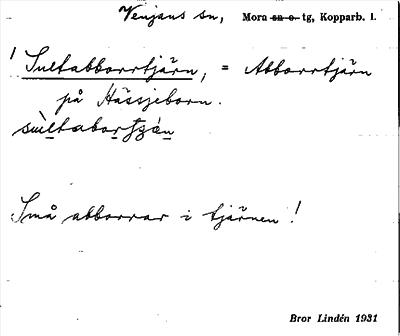 Venjans sn, Mora sn o. tg, Kopparb. l.
1 Sultabborrtjärn, = Abborrtjärn
på Hässjeborn.
Små abborrar i tjärnen!
Bror Lindén 1931